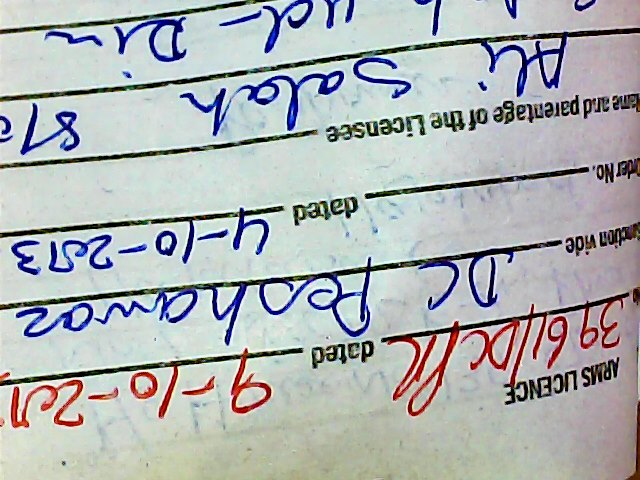 ARMS LICENCE
3961/DCPR dated 9-10-201
Sanction vide DC Peshawar
Order No. dated 4-10-2013
Name and parentage of the Licensee
Ali Salah S/o
Salah ud-Din